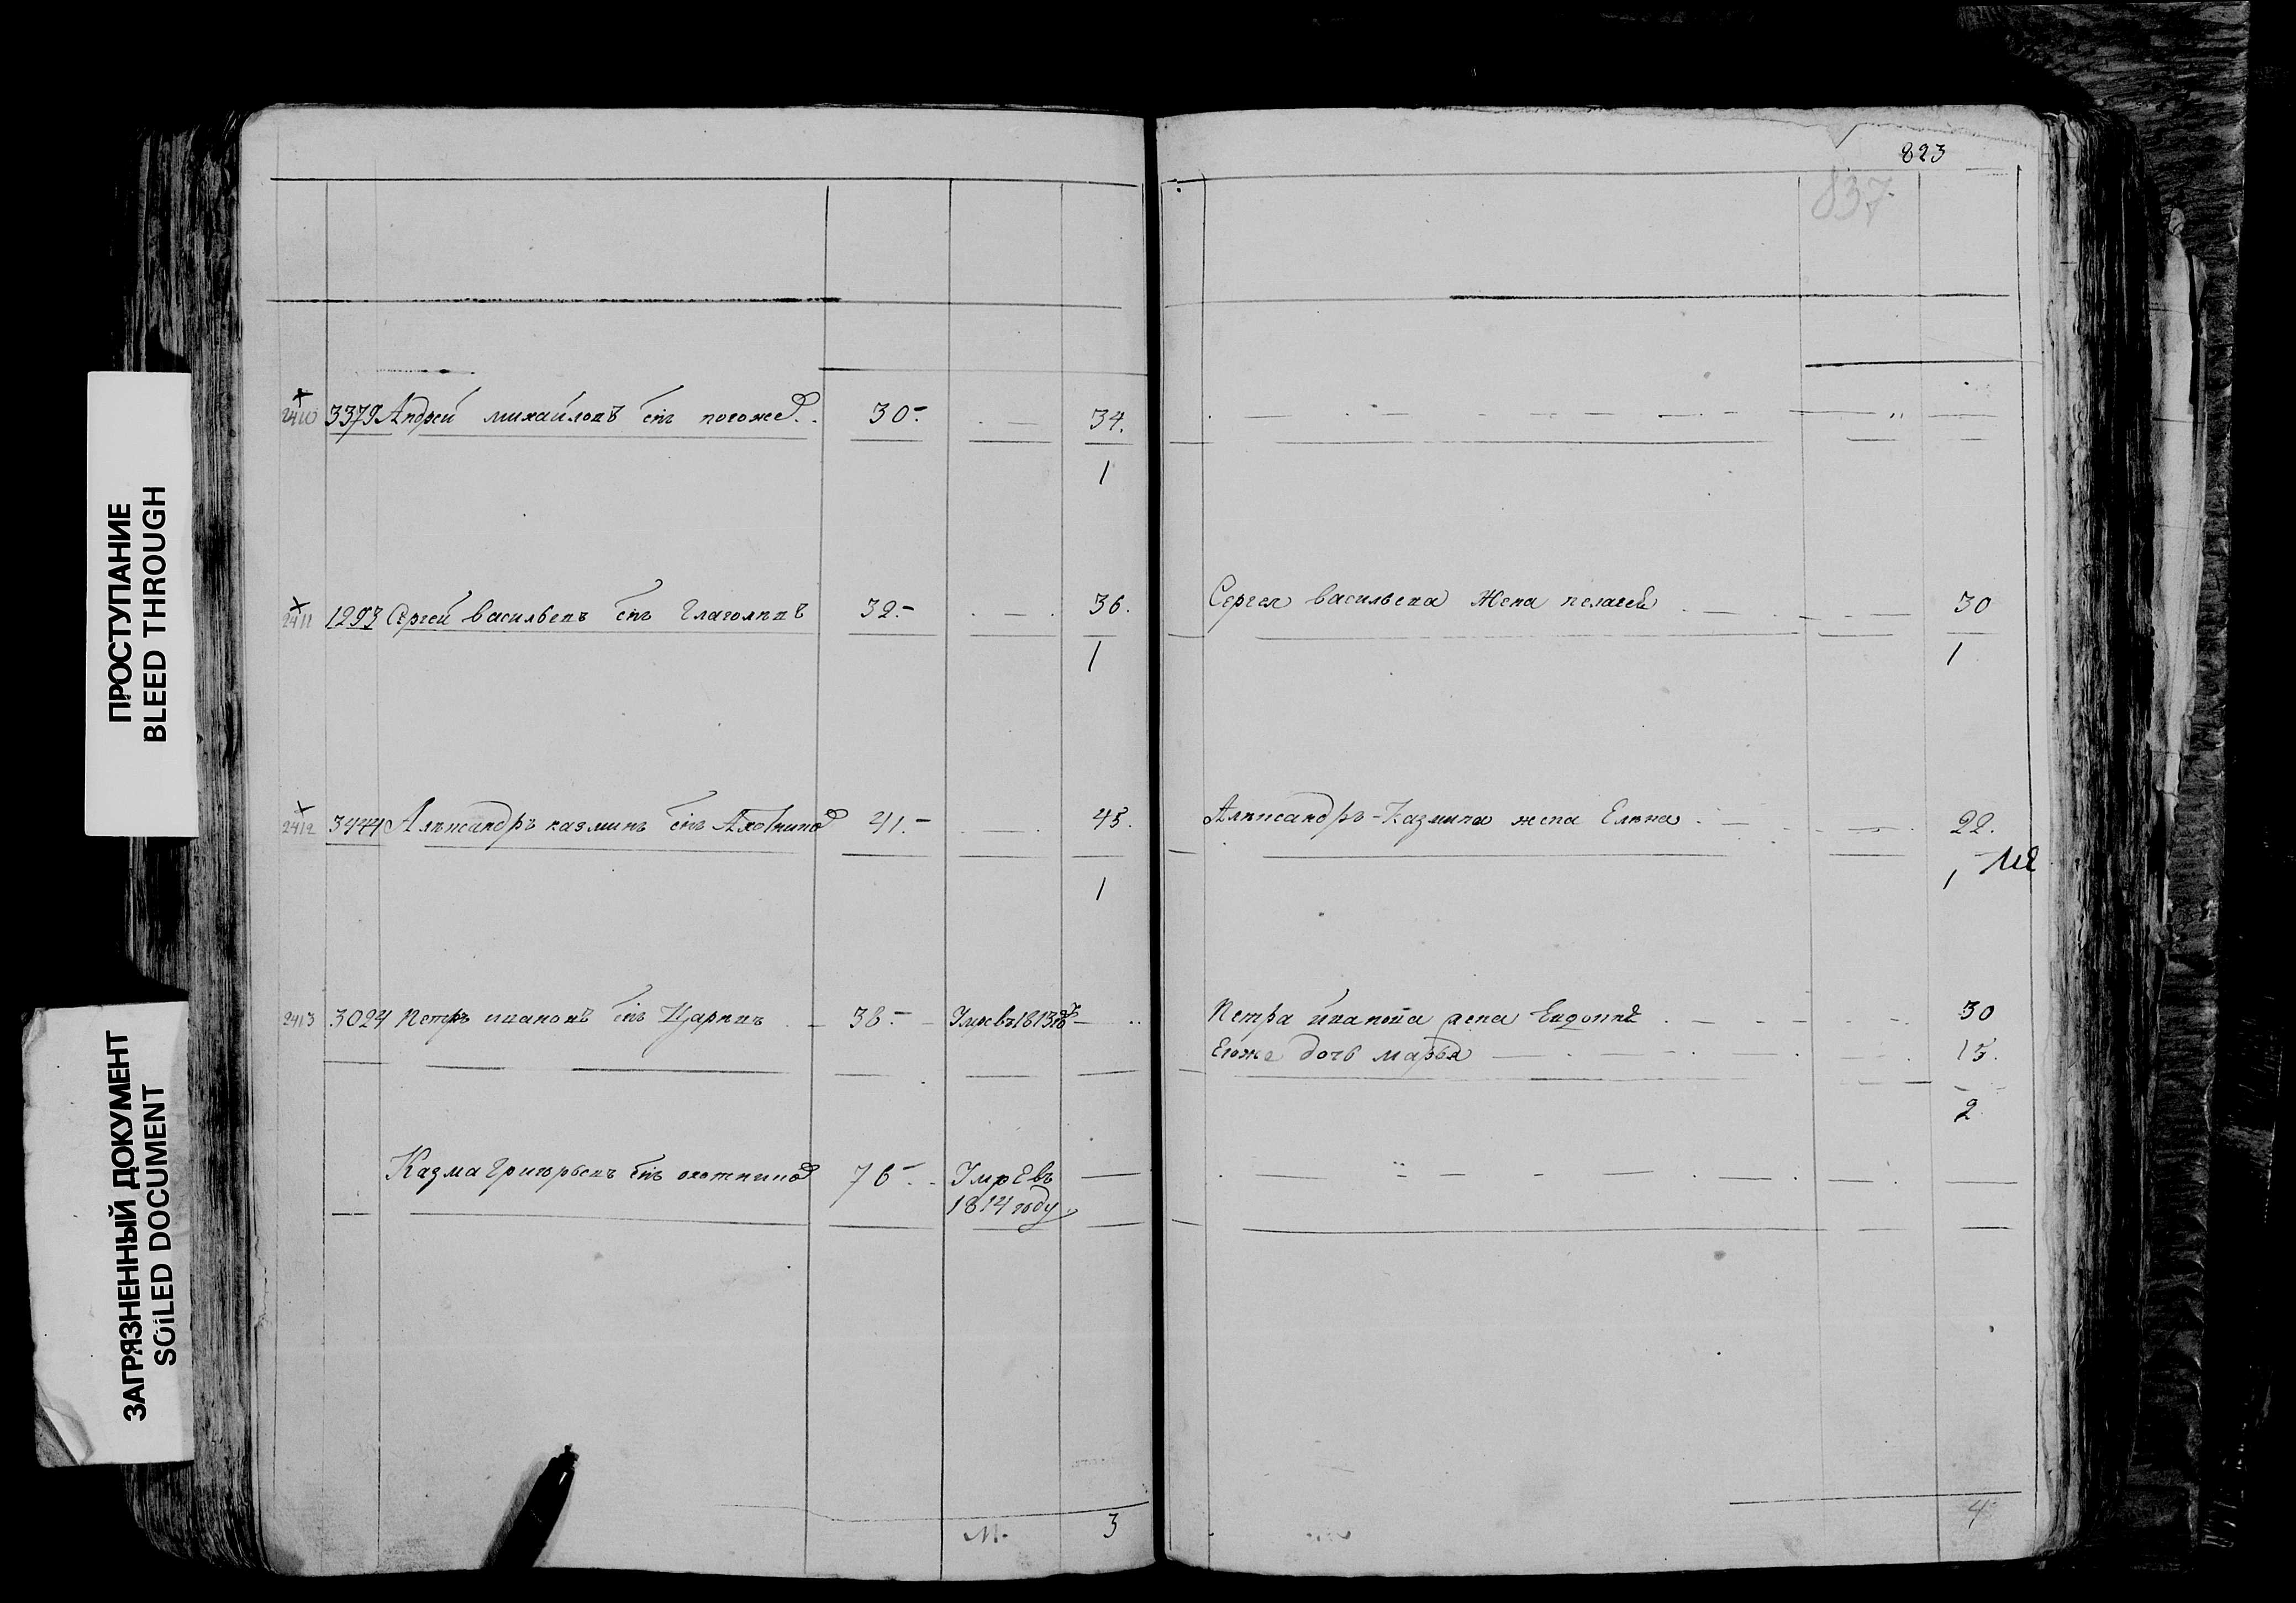 823
837
2410 3379 Андрей михайловъ снъ 30. 34.
1
2411 1293 Сергей васильевъ снъ Глаголевъ 32. 36.
Сергея васильева жена пелагея 30
1
1
2412 3444 Александръ казминъ снъ Ахотникъ 41. 45.
Александръ Казмина жена Елена 22.
1
1
2413 3024 Петръ ивановъ снъ Царевъ 38. Умре въ 1813
Петра иванова жена Евдокия 30
Егоже дочь марья 15.
2
Казма Григорьевъ снъ охотникъ 76. Умре въ
1814 году
М. 3
4
ПРОСТУПАНИЕ
BLEED THROUGH
ЗАГРЯЗНЕННЫЙ ДОКУМЕНТ
SOILED DOCUMENT